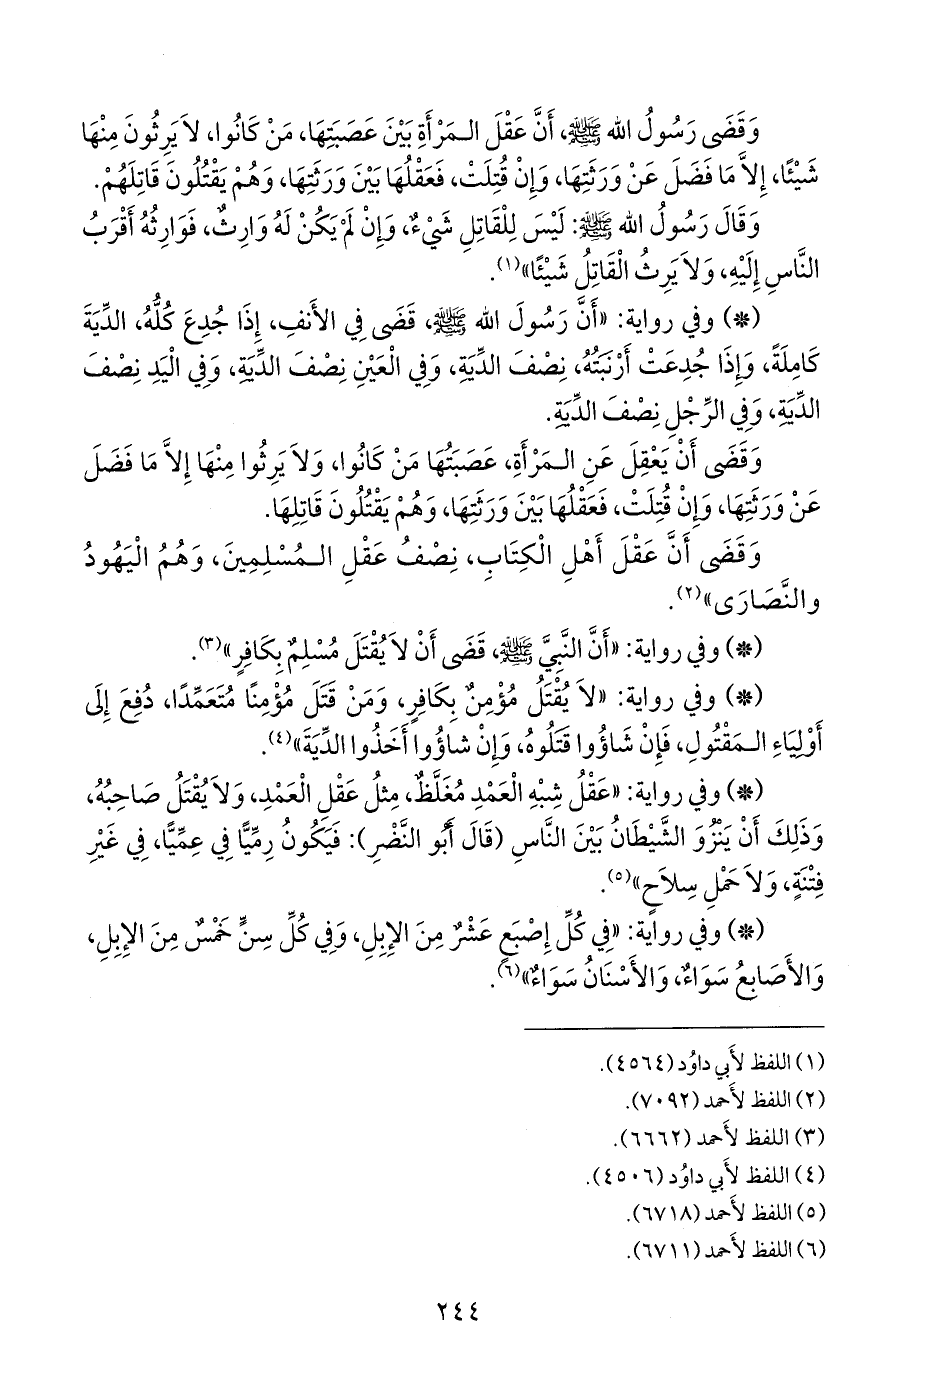 وَقَضَى رَسُولُ الله ﷺ، أَنَّ عَقْلَ الـمَرْأَةِ بَيْنَ عَصَبَتِهَا، مَنْ كَانُوا، لاَ يَرِثُونَ مِنْهَا
شَيْئًا، إِلاَّ مَا فَضَلَ عَنْ وَرَثَتِهَا، وَإِنْ قُتِلَتْ، فَعَقْلُهَا بَيْنَ وَرَثَتِهَا، وَهُمْ يَقْتُلُونَ قَاتِلَهُمْ.
وَقَالَ رَسُولُ الله ﷺ: لَيْسَ لِلْقَاتِلِ شَيْءٌ، وَإِنْ لَمْ يَكُنْ لَهُ وَارِثٌ، فَوَارِثُهُ أَقْرَبُ
النَّاسِ إِلَيْهِ، وَلاَ يَرِثُ الْقَاتِلُ شَيْئًا»(١).
(*) وفي رواية: «أَنَّ رَسُولَ الله ﷺ، قَضَى فِي الأَنفِ، إِذَا جُدِعَ كُلُّهُ، الدِّيَةَ
كَامِلَةً، وَإِذَا جُدِعَتْ أَرْنَبَتُهُ، نِصْفَ الدِّيَةِ، وَفِي الْعَيْنِ نِصْفَ الدِّيَةِ، وَفِي الْيَدِ نِصْفَ
الدِّيَةِ، وَفِي الرِّجْلِ نِصْفَ الدِّيَةِ.
وَقَضَى أَنْ يَعْقِلَ عَنِ الـمَرْأَةِ، عَصَبَتُهَا مَنْ كَانُوا، وَلاَ يَرِثُوا مِنْهَا إِلاَّ مَا فَضَلَ
عَنْ وَرَثَتِهَا، وَإِنْ قُتِلَتْ، فَعَقْلُهَا بَيْنَ وَرَثَتِهَا، وَهُمْ يَقْتُلُونَ قَاتِلِهَا.
وَقَضَى أَنَّ عَقْلَ أَهْلِ الْكِتَابِ، نِصْفُ عَقْلِ الـمُسْلِمِينَ، وَهُمُ الْيَهُودُ
والنَّصَارَى»(٢).
(*) وفي رواية: «أَنَّ النَّبِيَّ ﷺ، قَضَى أَنْ لاَ يُقْتَلَ مُسْلِمٌ بِكَافِرٍ»(٣).
(*) وفي رواية: «لاَ يُقْتَلُ مُؤْمِنٌ بِكَافِرٍ، وَمَنْ قَتَلَ مُؤْمِنًا مُتَعَمِّدًا، دُفِعَ إِلَى
أَوْلِيَاءِ الـمَقْتُولِ، فَإِنْ شَاؤُوا قَتَلُوهُ، وَإِنْ شاؤُوا أَخَذُوا الدِّيَةَ»(٤).
(*) وفي رواية: «عَقْلُ شِبْهِ الْعَمْدِ مُغَلَّظٌ، مِثْلُ عَقْلِ الْعَمْدِ، وَلاَ يُقْتَلُ صَاحِبُهُ،
وَذَلِكَ أَنْ يَنْزُوَ الشَّيْطَانُ بَيْنَ النَّاسِ (قَالَ أَبُو النَّضْرِ): فَيَكُونُ رِمِّيًّا فِي عِمِّيًّا، فِي غَيْرِ
فِتْنَةٍ، وَلاَ حَمْلِ سِلاَحٍ»(٥).
(*) وفي رواية: «فِي كُلِّ إِصْبَعٍ عَشْرٌ مِنَ الإِبِلِ، وَفِي كُلِّ سِنٍّ خَمْسٌ مِنَ الإِبِلِ،
وَالأَصَابِعُ سَوَاءٌ، وَالأَسْنَانُ سَوَاءٌ»(٦).
(١) اللفظ لأَبي داوُد (٤٥٦٤).
(٢) اللفظ لأَحمد (٧٠٩٢).
(٣) اللفظ لأَحمد (٦٦٦٢).
(٤) اللفظ لأَبي داوُد (٤٥٠٦).
(٥) اللفظ لأَحمد (٦٧١٨).
(٦) اللفظ لأَحمد (٦٧١١).
٢٤٤